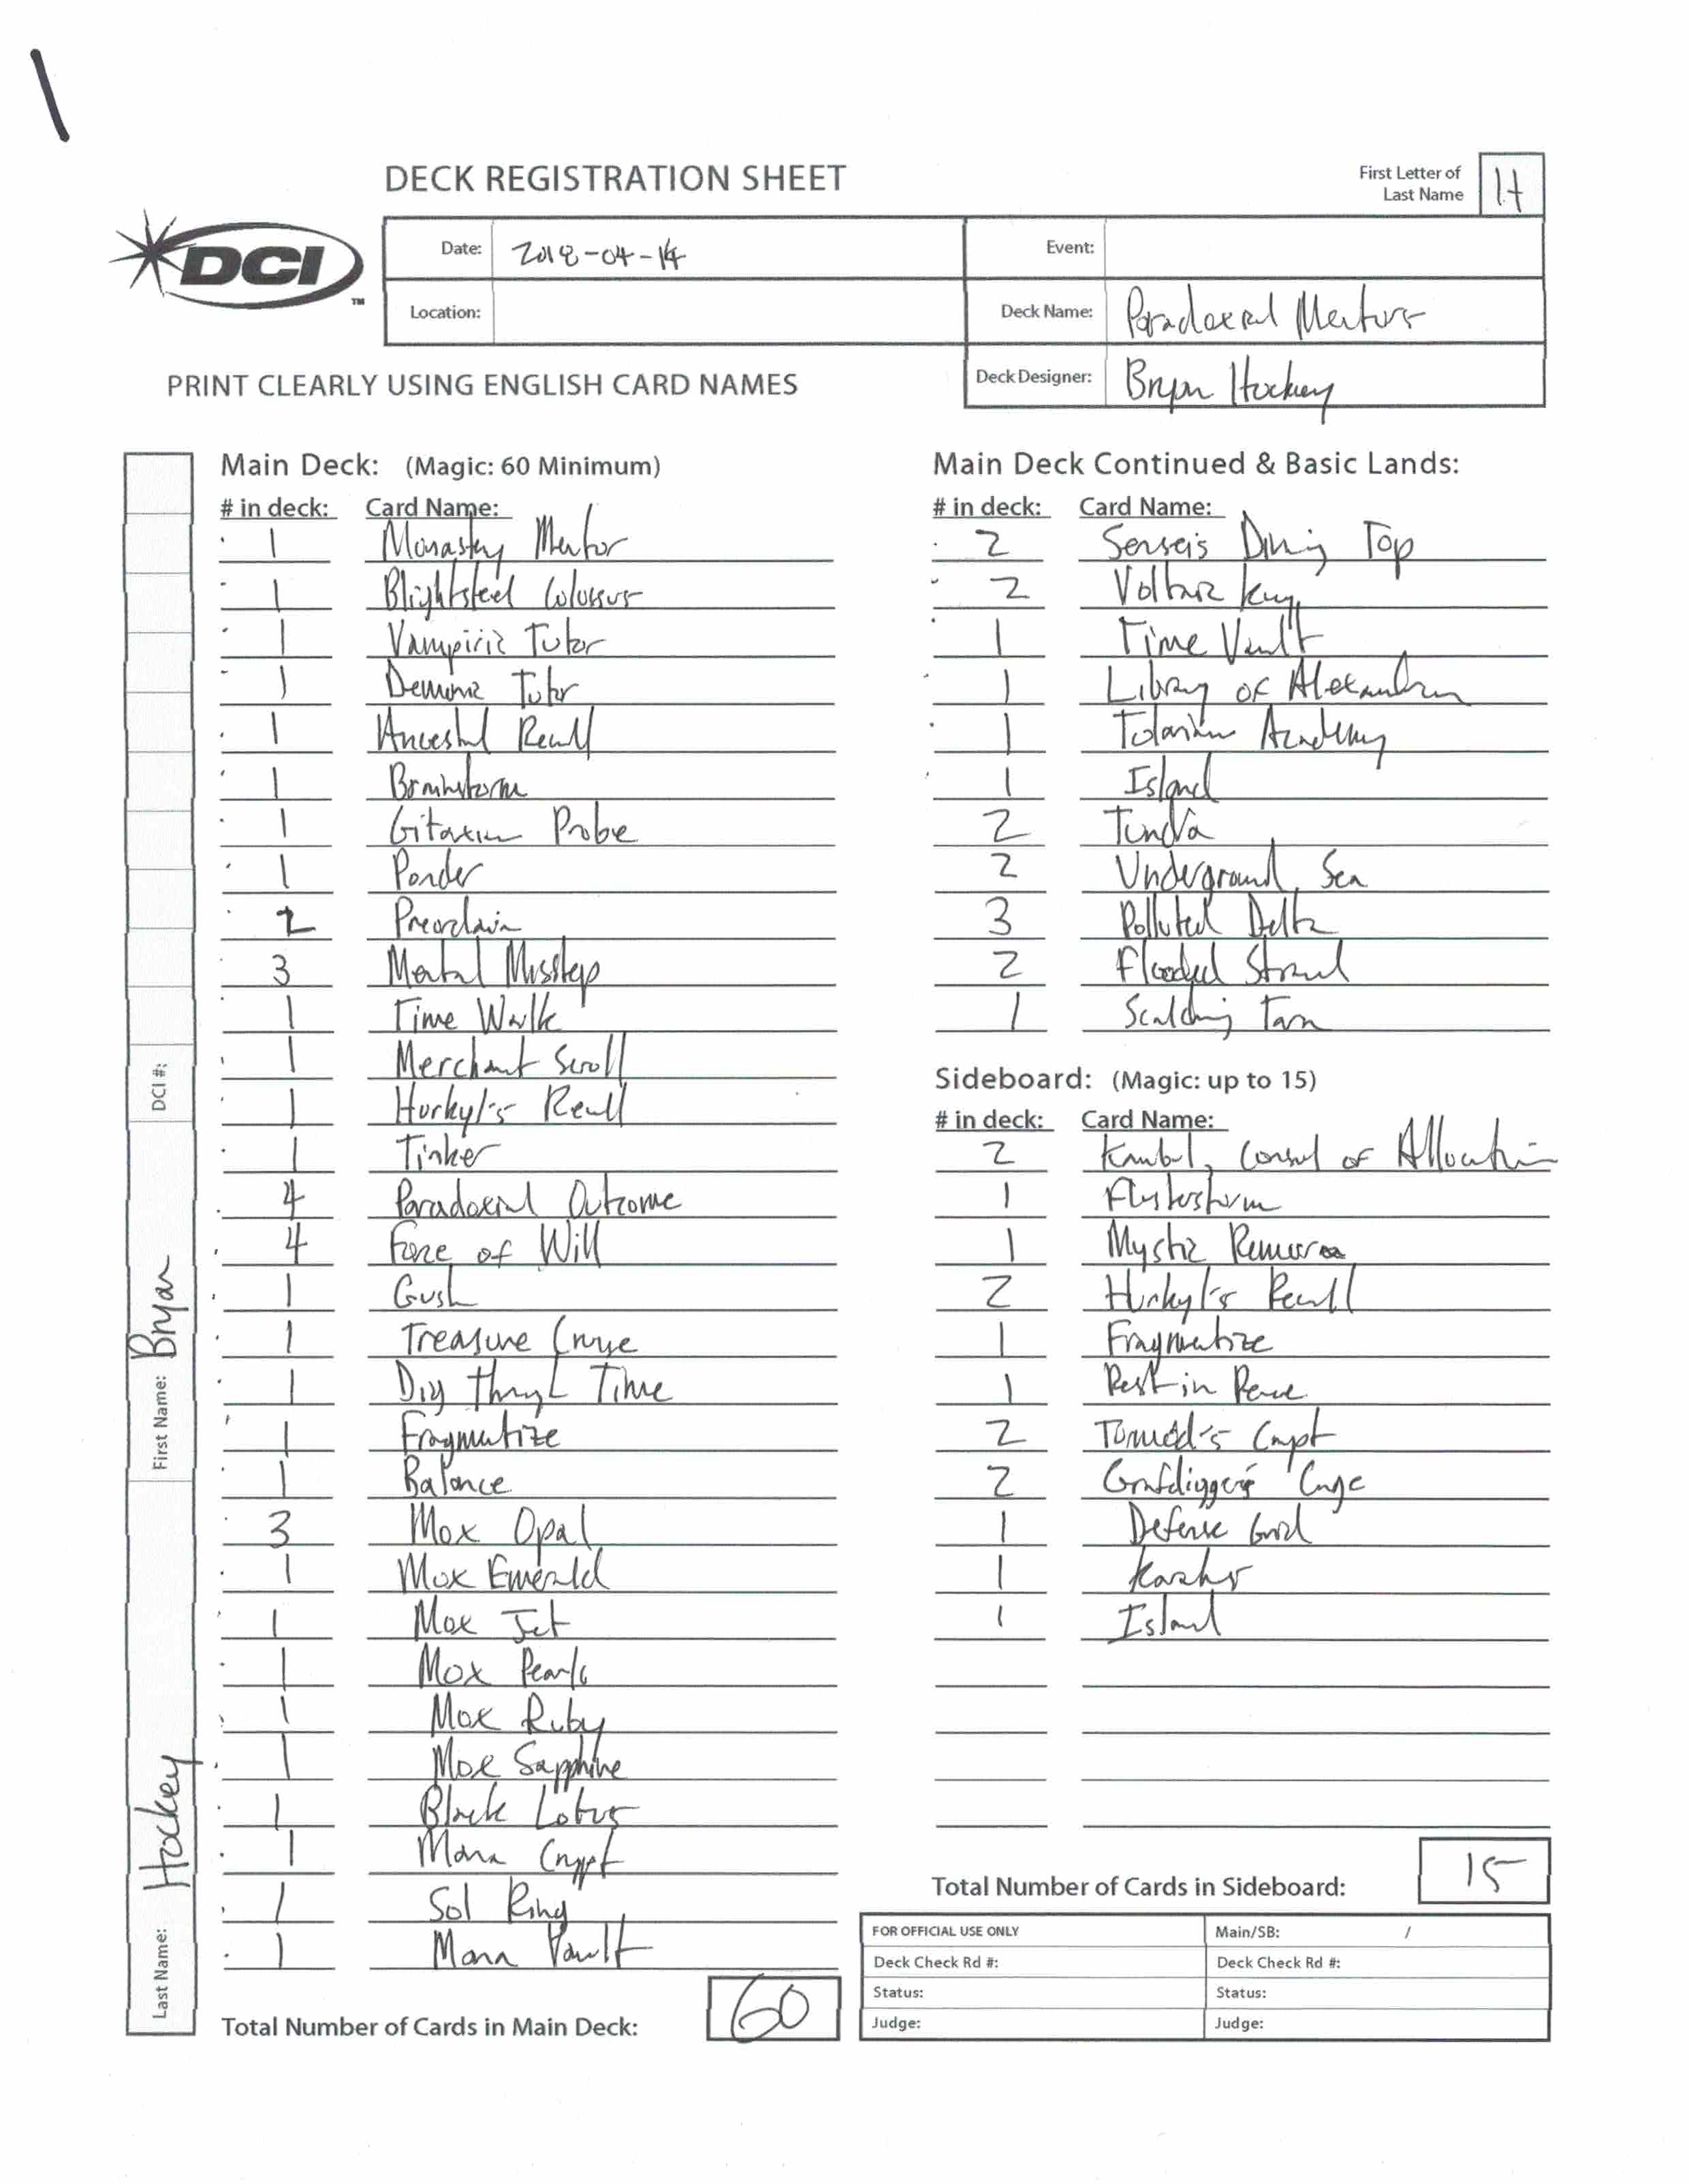 DECK REGISTRATION SHEET
First Letter of Last Name H
DCI TM
Date: 2018-04-14
Event:
Location:
Deck Name: Paradoxical Mentor
Deck Designer: Bryan Hockey
PRINT CLEARLY USING ENGLISH CARD NAMES
Main Deck: (Magic: 60 Minimum)
# in deck: Card Name:
1 Monastery Mentor
1 Blightsteel Colossus
1 Vampiric Tutor
1 Demonic Tutor
1 Ancestral Recall
1 Brainstorm
1 Gitaxian Probe
1 Ponder
2 Preordain
3 Mental Misstep
1 Time Walk
1 Merchant Scroll
1 Hurkyl's Recall
1 Tinker
4 Paradoxical Outcome
4 Force of Will
1 Gush
1 Treasure Cruise
1 Dig Through Time
1 Fragmatize
1 Balance
3 Mox Opal
1 Mox Emerald
1 Mox Jet
1 Mox Pearl
1 Mox Ruby
1 Mox Sapphire
1 Black Lotus
1 Mana Crypt
1 Sol Ring
1 Mana Vault
Total Number of Cards in Main Deck: 60
Main Deck Continued & Basic Lands:
# in deck: Card Name:
2 Senseis Divining Top
2 Voltaic Key
1 Time Vault
1 Library of Alexandria
1 Tolarian Academy
1 Island
2 Tundra
2 Underground Sea
3 Polluted Delta
2 Flooded Strand
1 Scalding Tarn
Sideboard: (Magic: up to 15)
# in deck: Card Name:
2 Kambal, Consul of Allocation
1 Flusterstorm
1 Mystic Remora
2 Hurkyl's Recall
1 Fragmatize
1 Rest in Peace
2 Tormod's Crypt
2 Grafdigger's Cage
1 Defense Grid
1 Karakas
1 Island
Total Number of Cards in Sideboard: 15
FOR OFFICIAL USE ONLY
Main/SB: /
Deck Check Rd #:
Deck Check Rd #:
Status:
Status:
Judge:
Judge:
Last Name: Hockey
First Name: Bryan
DCI #: